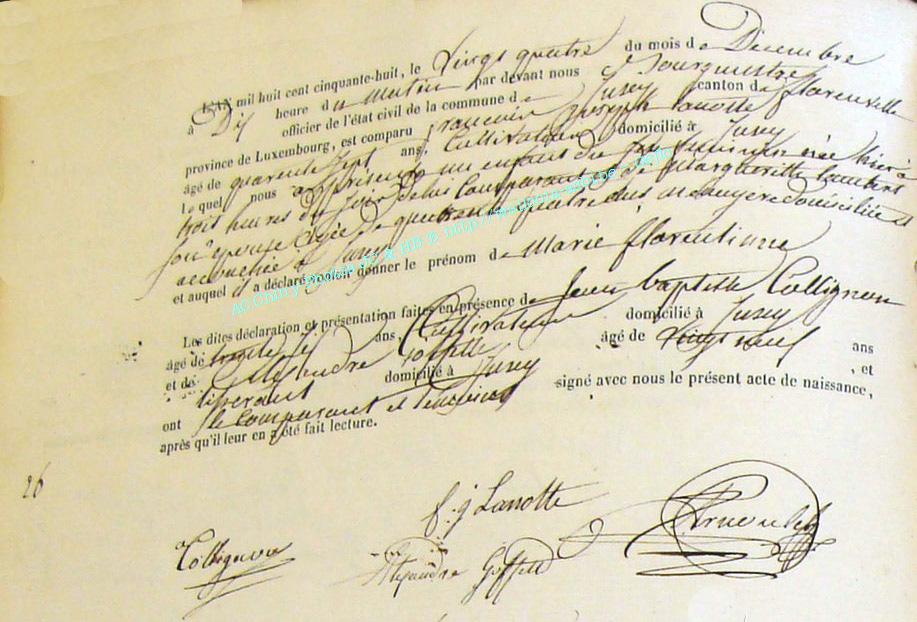 L'AN mil huit cent cinquante-huit, le vingt quatre du mois de Décembre
à Dix heure du matin par devant nous Bourgmestre
officier de l'état civil de la commune de Jusey canton de florenville
province de Luxembourg, est comparu françois joseph Lanotte
âgé de quarante sept ans, Cultivateur domicilié à Jusey
lequel nous a présenté un enfant du sexe féminin née hier à
trois heures du jour de lui Comparant & de Marguerite Lambert
son épouse âgée de quarante quatre ans ménagère domiciliée et
accouchée à Jusey
et auquel il a déclaré vouloir donner le prénom de Marie florentinne
Les dites déclaration et présentation faites en présence de Jean baptiste Collignon
âgé de trente ans, Cultivateur domicilié à Jusey
et de Alexandre Goffette âgé de vingt neuf ans
domicilié à Jusey , et
ont le comparant et témoins signé avec nous le présent acte de naissance,
après qu'il leur en a été fait lecture.
26
f. j Lanotte
Collignon
Alexandre Goffette